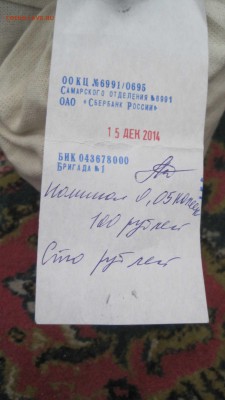 ОО КЦ №6991/0695
САМАРСКОГО ОТДЕЛЕНИЯ №6991
ОАО «СБЕРБАНК РОССИИ»
15 ДЕК 2014
БИК 043678000
БРИГАДА №1
номинал 0,05 копеек
100 рублей
Сто рублей